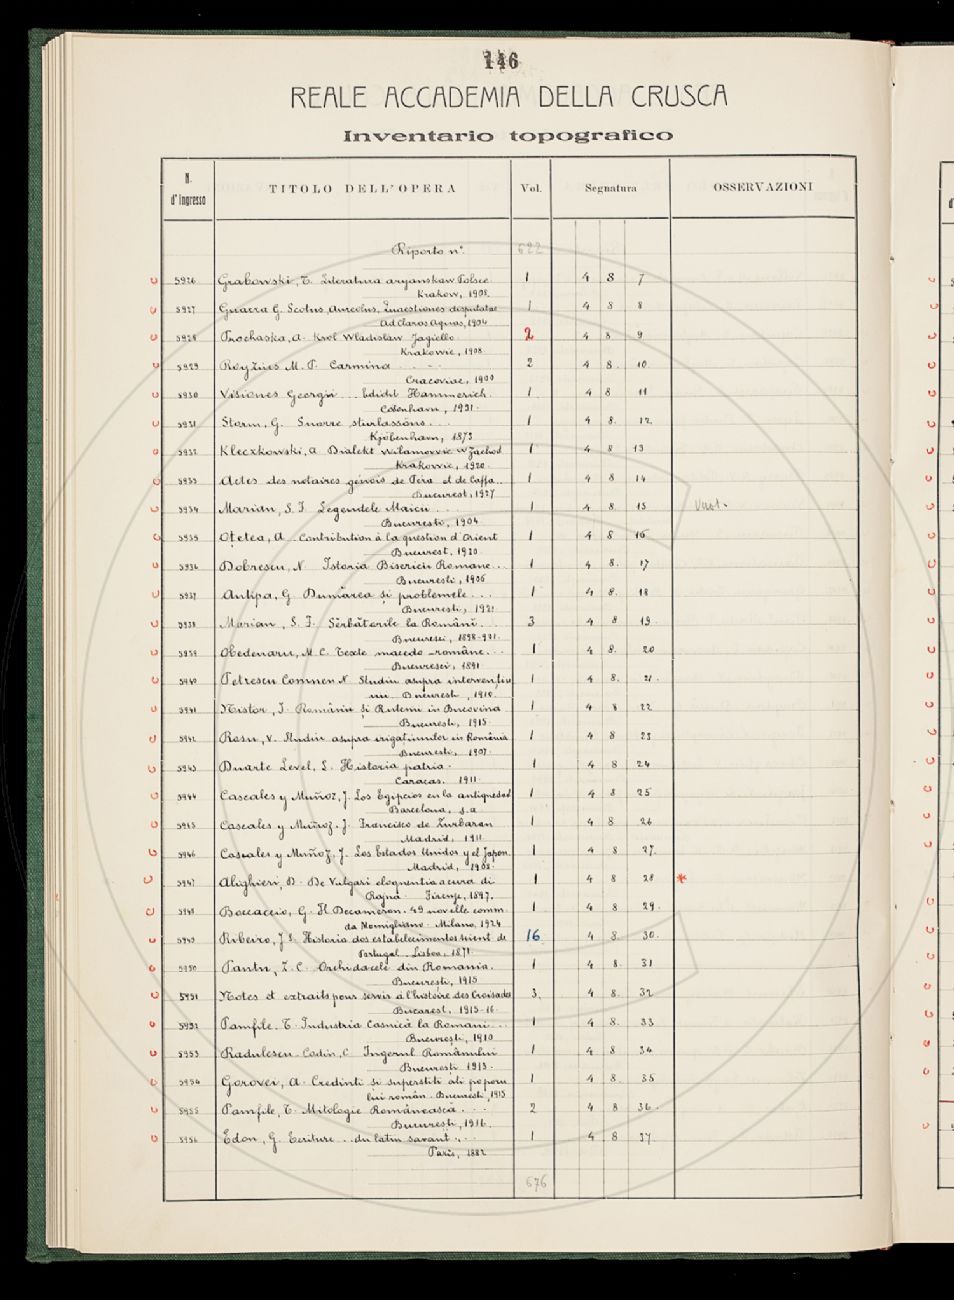 146
REALE ACCADEMIA DELLA CRUSCA
Inventario topografico
N. d'Ingresso TITOLO DELL'OPERA Vol. Segnatura OSSERVAZIONI
Riporto n°. 622
5926 Grabowski, T. Literatura aryanskaw Polsce 1 4 8 7
Krakow, 1908.
5927 Guarra G. Scotus, Aureolus, Quaestiones disputatae 1 4 8 8
Ad Claras Aquas, 1904
5928 Prochaska, A. Krol Wladislaw Jagiello 2 4 8 9
Krakowie, 1908
5929 Royzius M. P. Carmina 2 4 8. 10
Cracoviae, 1900
5930 Visiones Georgii ... Edidit Hammerich. 1 4 8 11
Cobenhavn, 1931.
5931 Storm, G. Snorre sturlassöns... 1 4 8. 12
Kjöbenhavn, 1873
5932 Kleczkowski, A Dialekt Wilamowic w Zachod 1 4 8 13
Krakowie, 1920.
5933 Actes des notaires génois de Pera et de Caffa.. 1 4 8 14
Bucurest, 1927
5934 Marian, S. F. Legendele Maicii ... 1 4 8. 15
Bucuresti, 1904
5935 Oțetea, A. Contribution à la question d'Orient 1 4 8 16
Bucurest, 1930
5936 Dobrescu, N Istoria Bisericii Romane... 1 4 8. 17
Bucuresti, 1906
5937 Antipa, G Dunărea și problemele ... 1 4 8. 18
Bucuresti, 1921
5938 Marian, S. F. Sĕrbătorile la Români ... 3 4 8 19.
Bucuresci, 1898-901.
5939 Obedenaru, M. C. Texte macedo-române... 1 4 8. 20
Bucuresci, 1891
5940 Petrescu Comnen N. Studiu asupra interventiu 1 4 8. 21.
nii Bucuresti, 1910.
5941 Nistor, I. Românii și Rutenii in Bucovina 1 4 8 22
Bucuresti, 1915.
5942 Rosu, V. Studiu asupra irigatiunilor in România 1 4 8 23
Bucuresti, 1907.
5943 Duarte Level, L. Historia patria. 1 4 8 24
Caracas. 1911.
5944 Cascales y Muñoz, J. Los Egipcios en la antiguedad 1 4 8 25
Barcelona, s.a
5945 Cascales y Muñoz, J. Francisco de Zurbaran 1 4 8 26
Madrid, 1911
5946 Cascales y Muñoz, J. Los Estados Unidos y el Japon. 1 4 8 27.
Madrid, 1908.
5947 Alighieri, D. De Vulgari eloquentia a cura di 1 4 8 28 *
Rajna. Firenze, 1897.
5948 Boccaccio, G. Il Decameron. 49 novelle comm. 1 4 8 29.
da Momigliano. Milano, 1924
5949 Ribeiro, J. S. Historia dos estabelecimentos scient. de 16 4 8. 30.
Portugal. Lisboa, 1871.
5950 Pantu, Z. C. Orchidaceele din Romania. 1 4 8. 31
Bucuresti, 1915
5951 Notes et extraits pour servir à l'histoire des Croisades 3. 4 8. 32
Bucarest, 1915-16.
5952 Pamfile, T. Industria Casnică la Romani... 1 4 8. 33
Bucuresti, 1910
5953 Radulescu Codin, C Ingerul Românului 1 4 8 34
Bucuresti 1913.
5954 Gorovei, A. Credinti si superstitii ale poporu 1 4 8. 35
lui român. Bucuresti, 1915
5955 Pamfile, T. Mitologie Românească... 2 4 8 36.
Bucuresti, 1916.
5956 Edon, G. Ecriture... du latin savant ... 1 4 8 37.
Paris, 1882
676